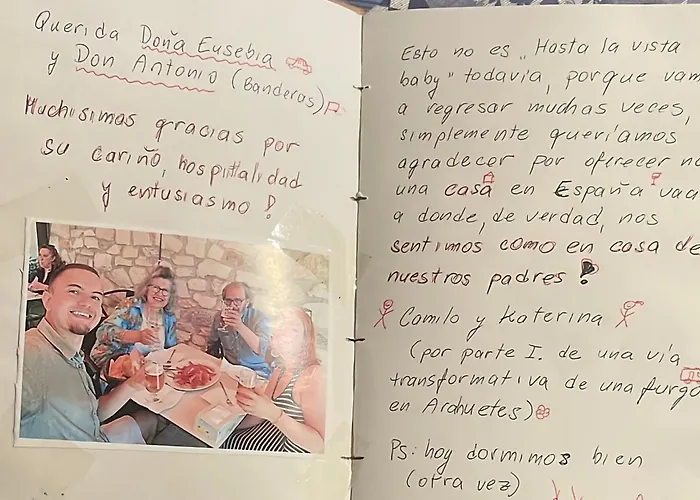 Querida Doña Eusebia
y Don Antonio (Banderas)
Muchisimas gracias por
su cariño, hospitalidad
y entusiasmo!
Esto no es „Hasta la vista
baby" todavía, porque vam
a regresar muchas veces,
simplemente queríamos
agradecer por ofrecer no
una casa en España vac
a donde, de verdad, nos
sentimos como en casa de
nuestros padres!
Camilo y Katerina
(por parte I. de una vía
transformativa de una furgo
en Arahuetes)
Ps: hoy dormimos bien
(otra vez)